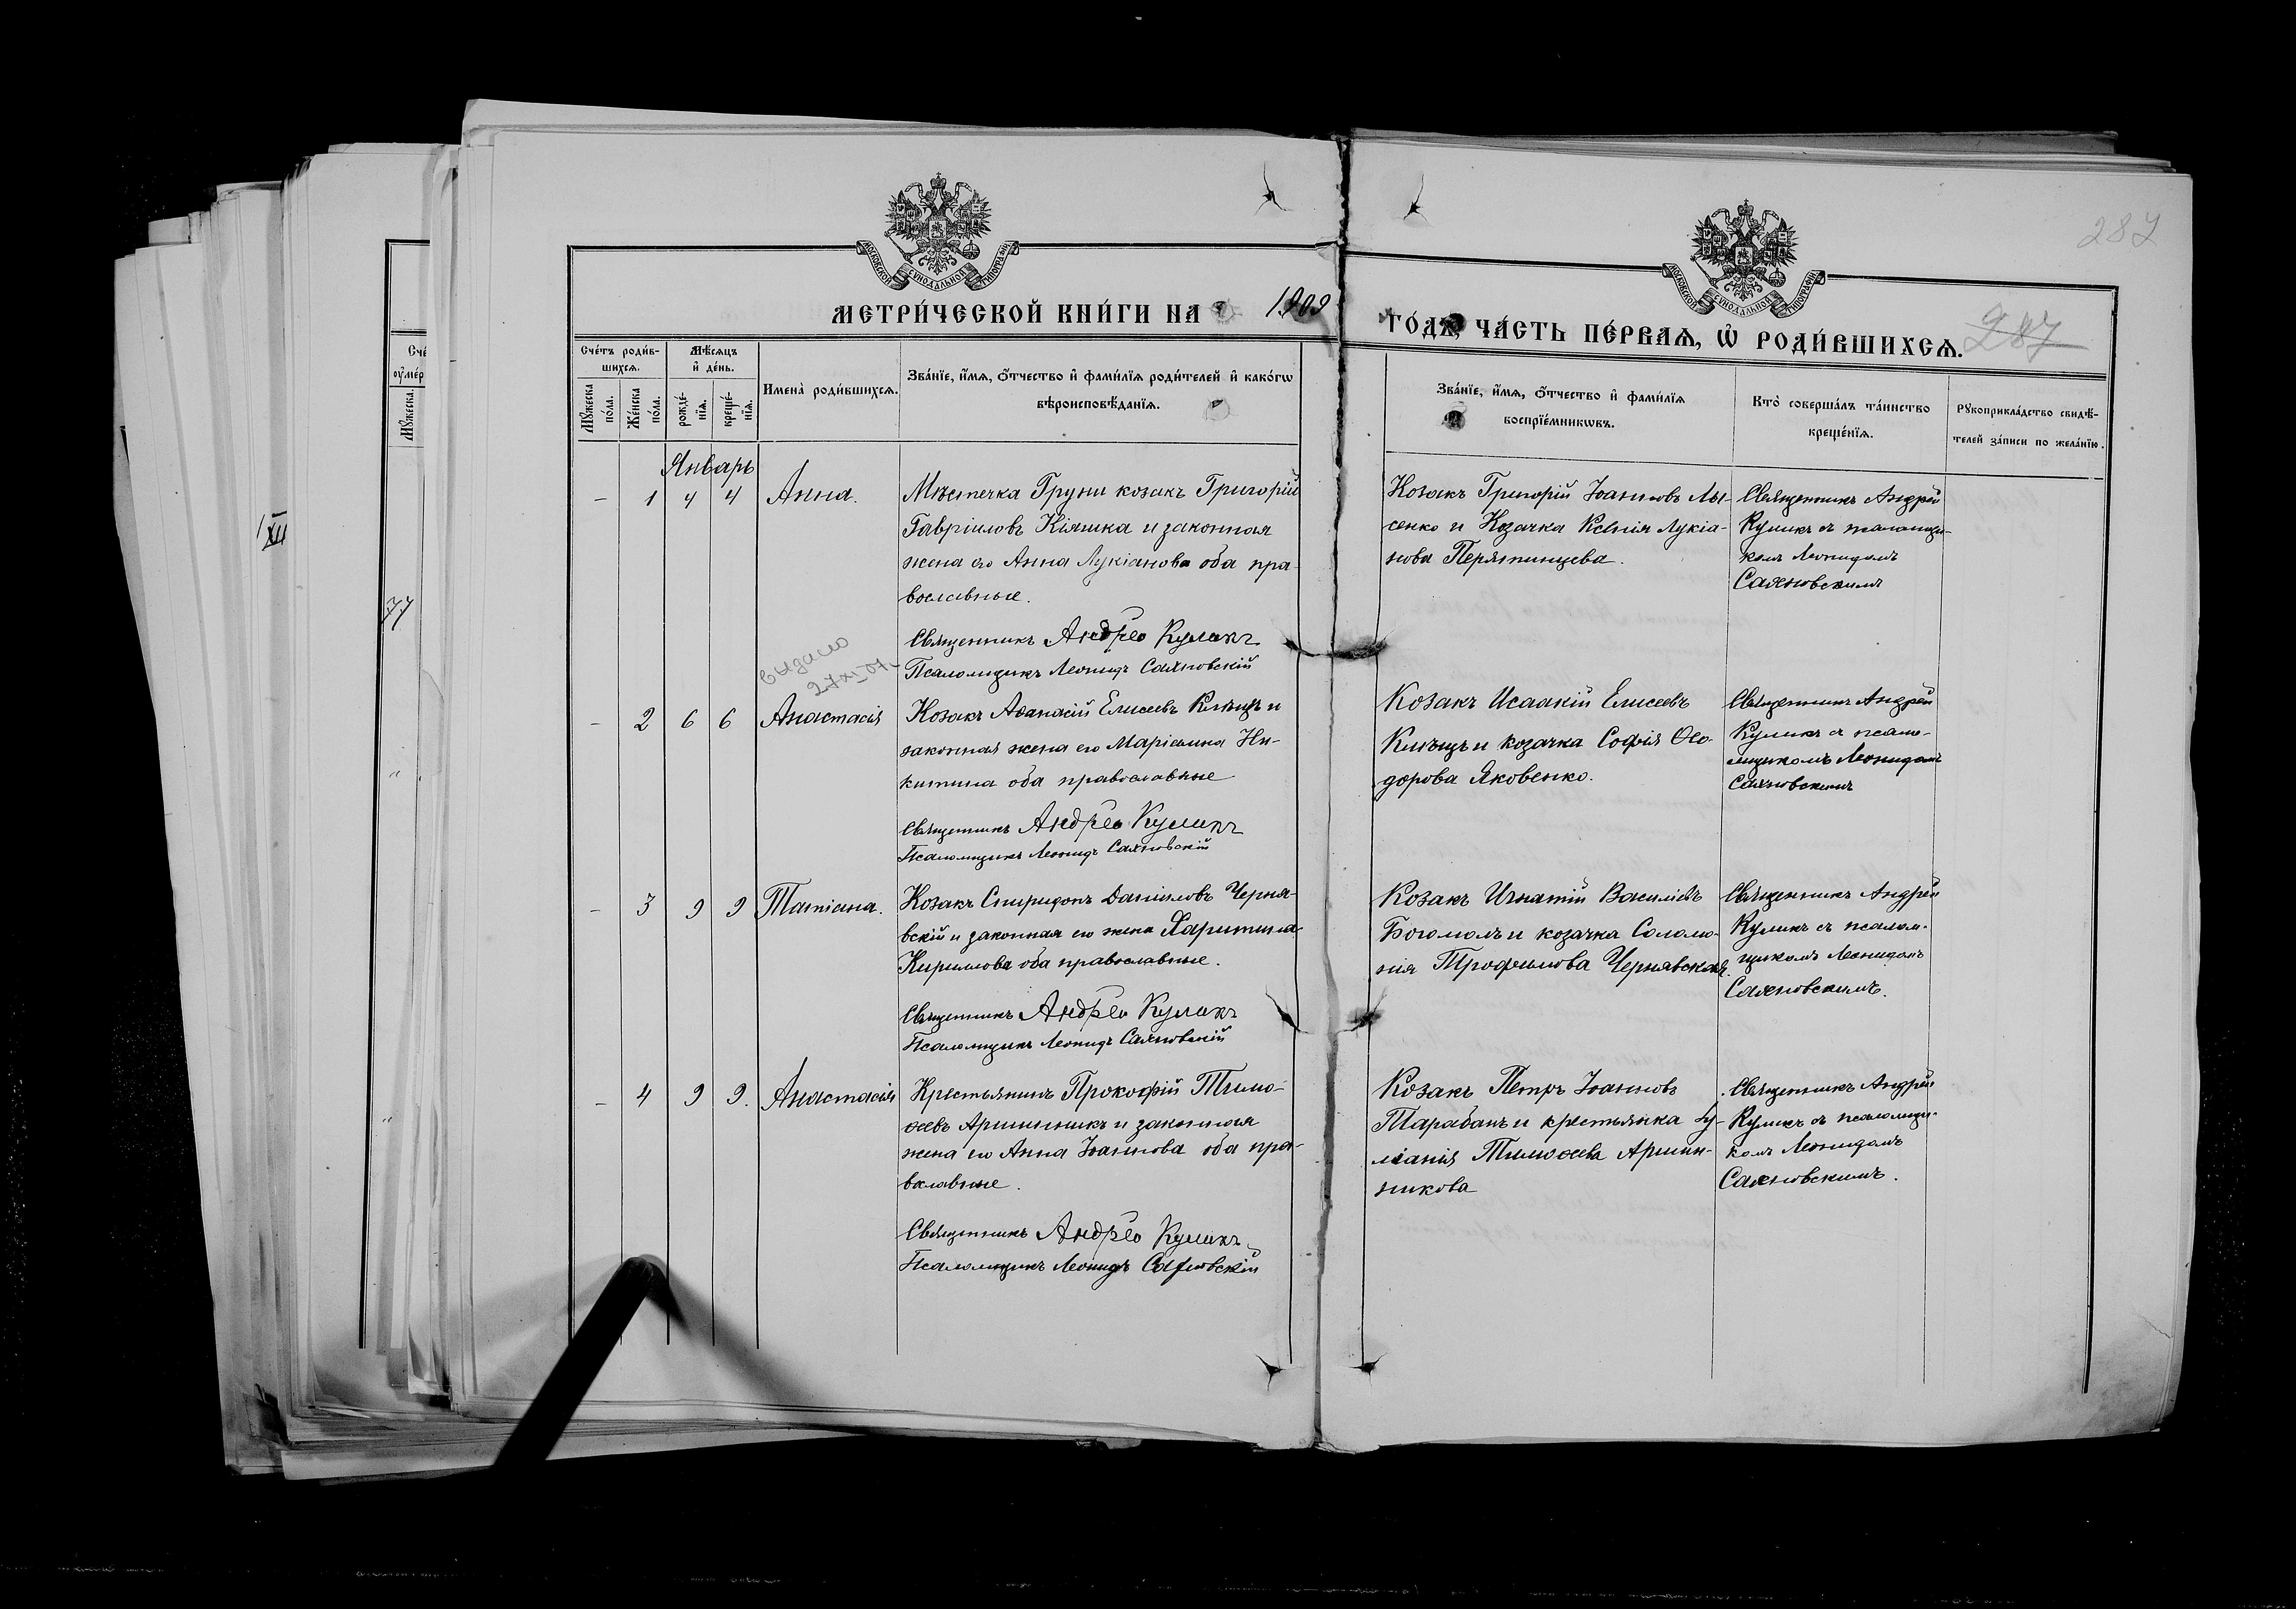 287
МОСКОВСКОЙ СѴНОДАЛЬНОЙ ТИПОГРАФІИ
МОСКОВСКОЙ СѴНОДАЛЬНОЙ ТИПОГРАФІИ
МЕТРИ́ЧЕСКОЙ КНИ́ГИ НА 1909 ГО́ДЪ, ЧА́СТЬ ПЕ́РВАѦ, Ѡ҆ РОДИ́ВШИХСѦ.
287
Сче́тъ роди́в-
шихсѧ.
Мѣ́сѧцъ
и҆ де́нь.
Мꙋ́жеска
по́ла.
Же́нска
по́ла.
рожде́-
нїѧ.
креще́-
нїѧ.
Имена̀ роди́вшихсѧ.
Зва́нїе, и҆́мѧ, ѻ҆́тчество и҆ фами́лїѧ роди́телей и҆ како́гѡ
вѣроисповѣ́данїѧ.
Зва́нїе, и҆́мѧ, ѻ҆́тчество и҆ фами́лїѧ
воспрїе́мникѡвъ.
Кто̀ соверша́лъ та́инство
креще́нїѧ.
Рꙋкоприкла́дство свидѣ́-
телей за́писи по жела́нїю.
Январь
– 1 4 4 Анна.
Мѣстечка Груни козакъ Григорій
Гавріиловъ Кіяшка и законная
жена его Анна Лукіанова оба пра-
вославные.
Священникъ Андрей Куликъ
Псаломщикъ Леонидъ Саяновскій
Козакъ Григорій Іоанновъ Лы-
сенко и Козачка Ксенія Лукіа-
нова Перятинцева.
Священникъ Андрей
Куликъ съ псаломщи-
комъ Леонидомъ
Саяновскимъ
выдано
27 XI 07
– 2 6 6 Анастасія
Козакъ Аѳанасій Елисеевъ Клѣцъ и
законная жена его Маріамна Ни-
китина оба православные
Священникъ Андрей Куликъ
Псаломщикъ Леонидъ Саяновскій
Козакъ Исаакій Елисеевъ
Клѣцъ и козачка Софія Ѳео-
дорова Яковенко.
Священникъ Андрей
Куликъ съ псало-
мщикомъ Леонидомъ
Саяновскимъ
– 3 9 9 Татіана.
Козакъ Спиридонъ Даніиловъ Черня-
вскій и законная его жена Харитина
Кирилова оба православные.
Священникъ Андрей Куликъ
Псаломщикъ Леонидъ Саяновскій
Козакъ Игнатій Василіевъ
Богомолъ и козачка Соломо-
нія Трофимова Чернявская.
Священникъ Андрей
Куликъ съ псалом-
щикомъ Леонидомъ
Саяновскимъ.
– 4 9 9. Анастасія
Крестьянинъ Прокофій Тимо-
ѳеевъ Аршинникъ и законная
жена его Анна Іоаннова оба пра-
вславные.
Священникъ Андрей Куликъ
Псаломщикъ Леонидъ Саяновскій
Козакъ Петръ Іоанновъ
Тарабанъ и крестьянка Іу-
ліанія Тимоѳеева Аршин-
никова
Священникъ Андрей
Куликъ съ псаломщи-
комъ Леонидомъ
Саяновскимъ.
Мꙋ́жеска
77
1 XII